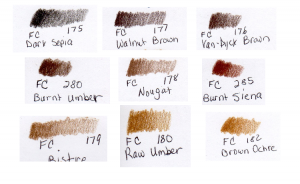 FC 175
Dark Sepia
177
FC
Walnut Brown
FC 176
Van-Dyck Brown
FC 280
Burnt Umber
FC 178
Nougat
FC 285
Burnt Siena
FC 179
Bistre
FC 180
Raw Umber
FC 182
Brown Ochre